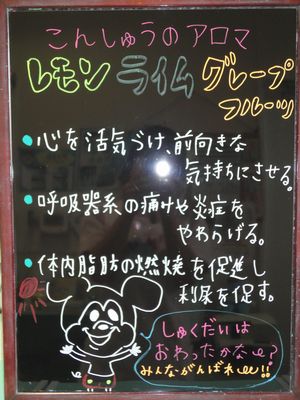 こんしゅうのアロマ
レモン ライム グレープ
フルーツ
・心を活気づけ、前向きな
気持ちにさせる。
・呼吸器系の痛みや炎症を
やわらげる。
・体内脂肪の燃焼を促進し
利尿を促す。
しゅくだいは
おわったかな〜?
みんながんばれ〜!!